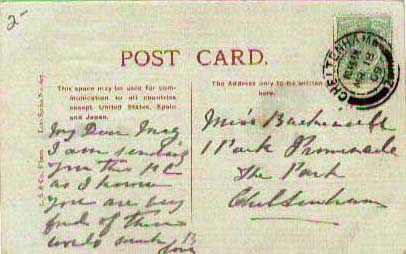 2-
CHELTENHAM
POST CARD.
This space may be used for com-
munication to all countries
except United States, Spain
and Japan.
The Address only to be written
here.
My Dear
I am sending
you this P.C
as I know
you are very
fond of these
Love
Miss
1 Park Promenade
The Park
Cheltenham